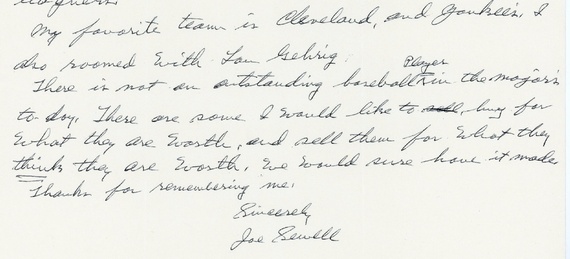 my favorite team is Cleveland, and Yankee's, I
also roomed with Lou Gehrig.
Player
There is not an outstanding baseball in the majors
to-day, There are some I would like to sell, buy for
what they are worth, and sell them for what they
think they are worth. We would sure have it made
Thanks for remembering me.
Sincerely
Joe Sewell